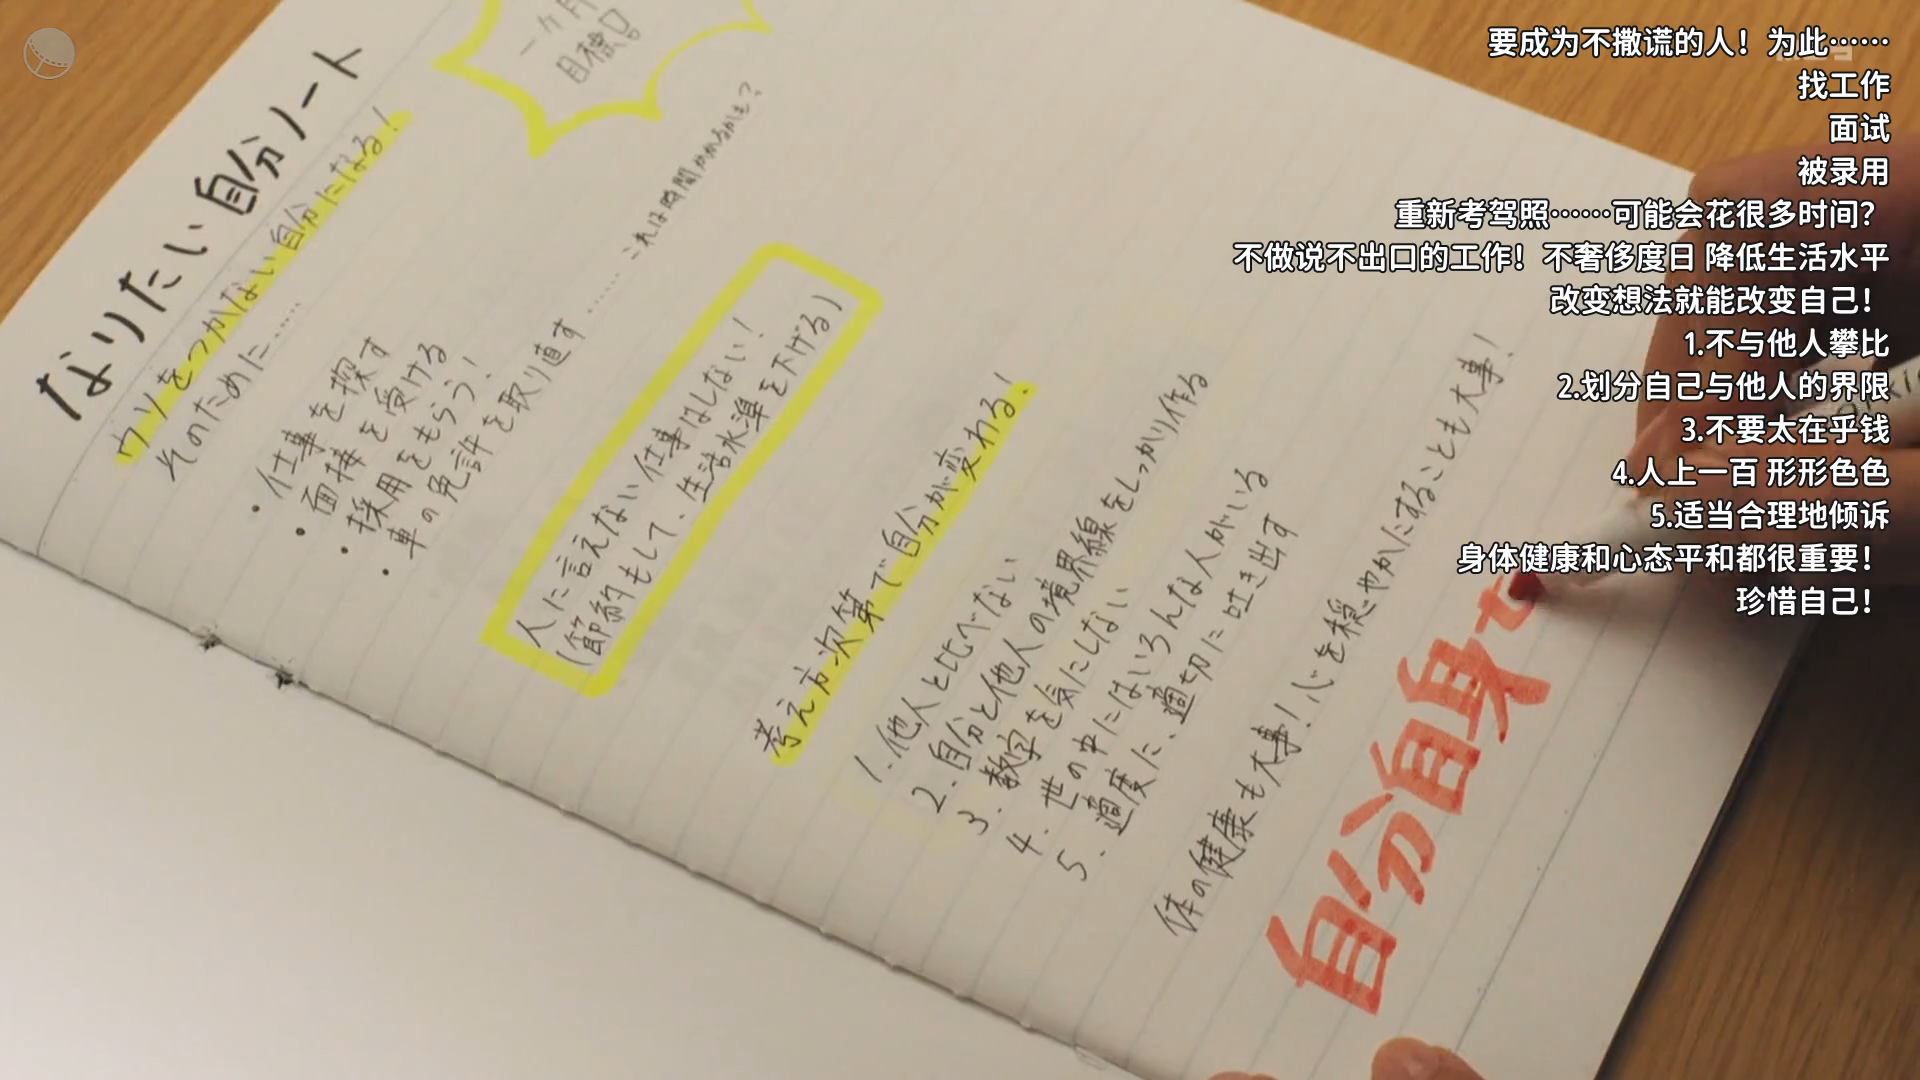 なりたい自分ノート
一ヶ月
目標!
ウソをつかない自分になる!
そのために……
・仕事を探す
・面接を受ける
・採用をもらう!
・車の免許を取り直す……これは時間かかるかも?
人に言えない仕事はしない!
(節約もして、生活水準を下げる)
考え方次第で自分が変わる!
1. 他人と比べない
2. 自分と他人の境界線をしっかり作る
3. 数字を気にしない
4. 世の中にはいろんな人がいる
5. 適度に、適切に吐き出す
体の健康も大事!心を穏やかにすることも大事!
自分自身も
要成为不撒谎的人！为此……
找工作
面试
被录用
重新考驾照……可能会花很多时间？
不做说不出口的工作！不奢侈度日 降低生活水平
改变想法就能改变自己！
1.不与他人攀比
2.划分自己与他人的界限
3.不要太在乎钱
4.人上一百 形形色色
5.适当合理地倾诉
身体健康和心态平和都很重要！
珍惜自己！